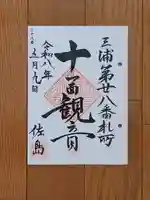 三浦第廿八番札所
十一面観音
令和八年
五月九日
佐島